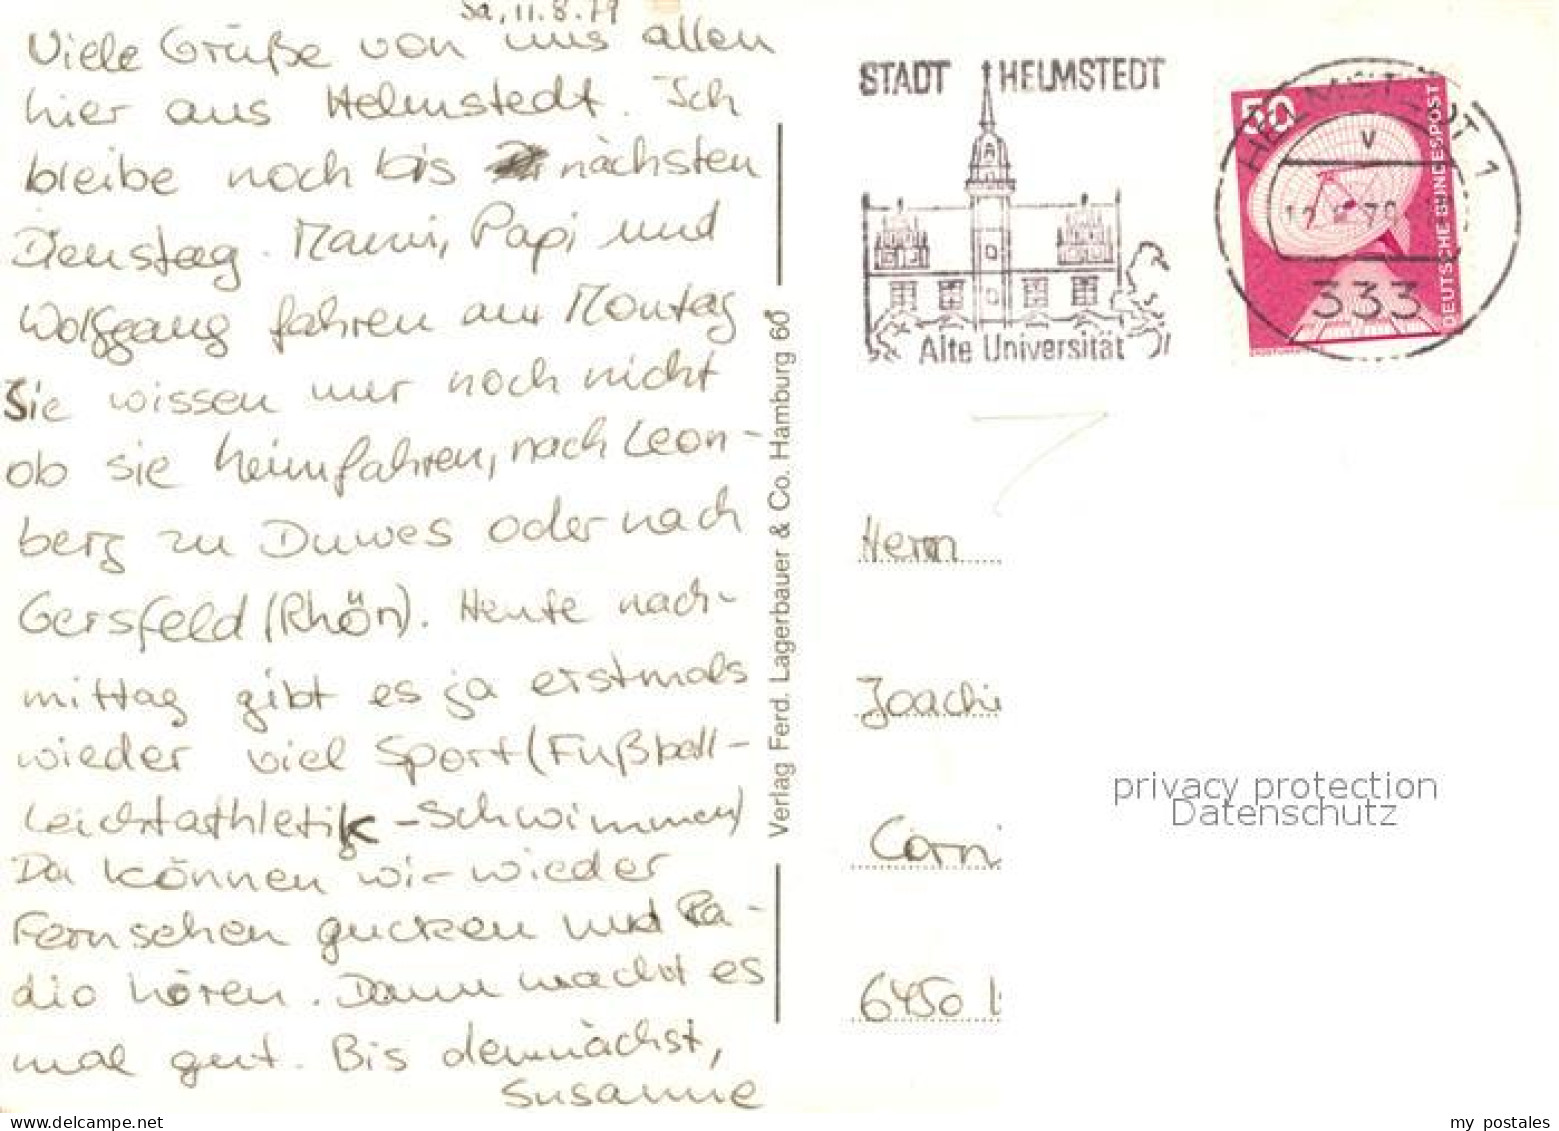 Sa, 11.8.79
Viele Grüße von uns allen
hier aus Helmstedt. Ich
bleibe noch bis nächsten
Dienstag. Mami, Papi und
Wolfgang fahren am Montag
Sie wissen nur noch nicht
ob sie heimfahren, nach Leon-
berg zu Duwes oder nach
Gersfeld (Rhön). Heute nach-
mittag gibt es ja erstmals
wieder viel Sport (Fußball-
Leichtathletik-Schwimmen)
Da können wir wieder
Fernsehen gucken und Ra-
dio hören. Dann macht es
mal gut. Bis demnächst,
Susanne
Verlag Ferd. Lagerbauer & Co. Hamburg 60
STADT HELMSTEDT
Alte Universität
HELMSTEDT 1
v
333
50
DEUTSCHE BUNDESPOST
Herrn
Joachi
Corn
6450
privacy protection
Datenschutz
my postales